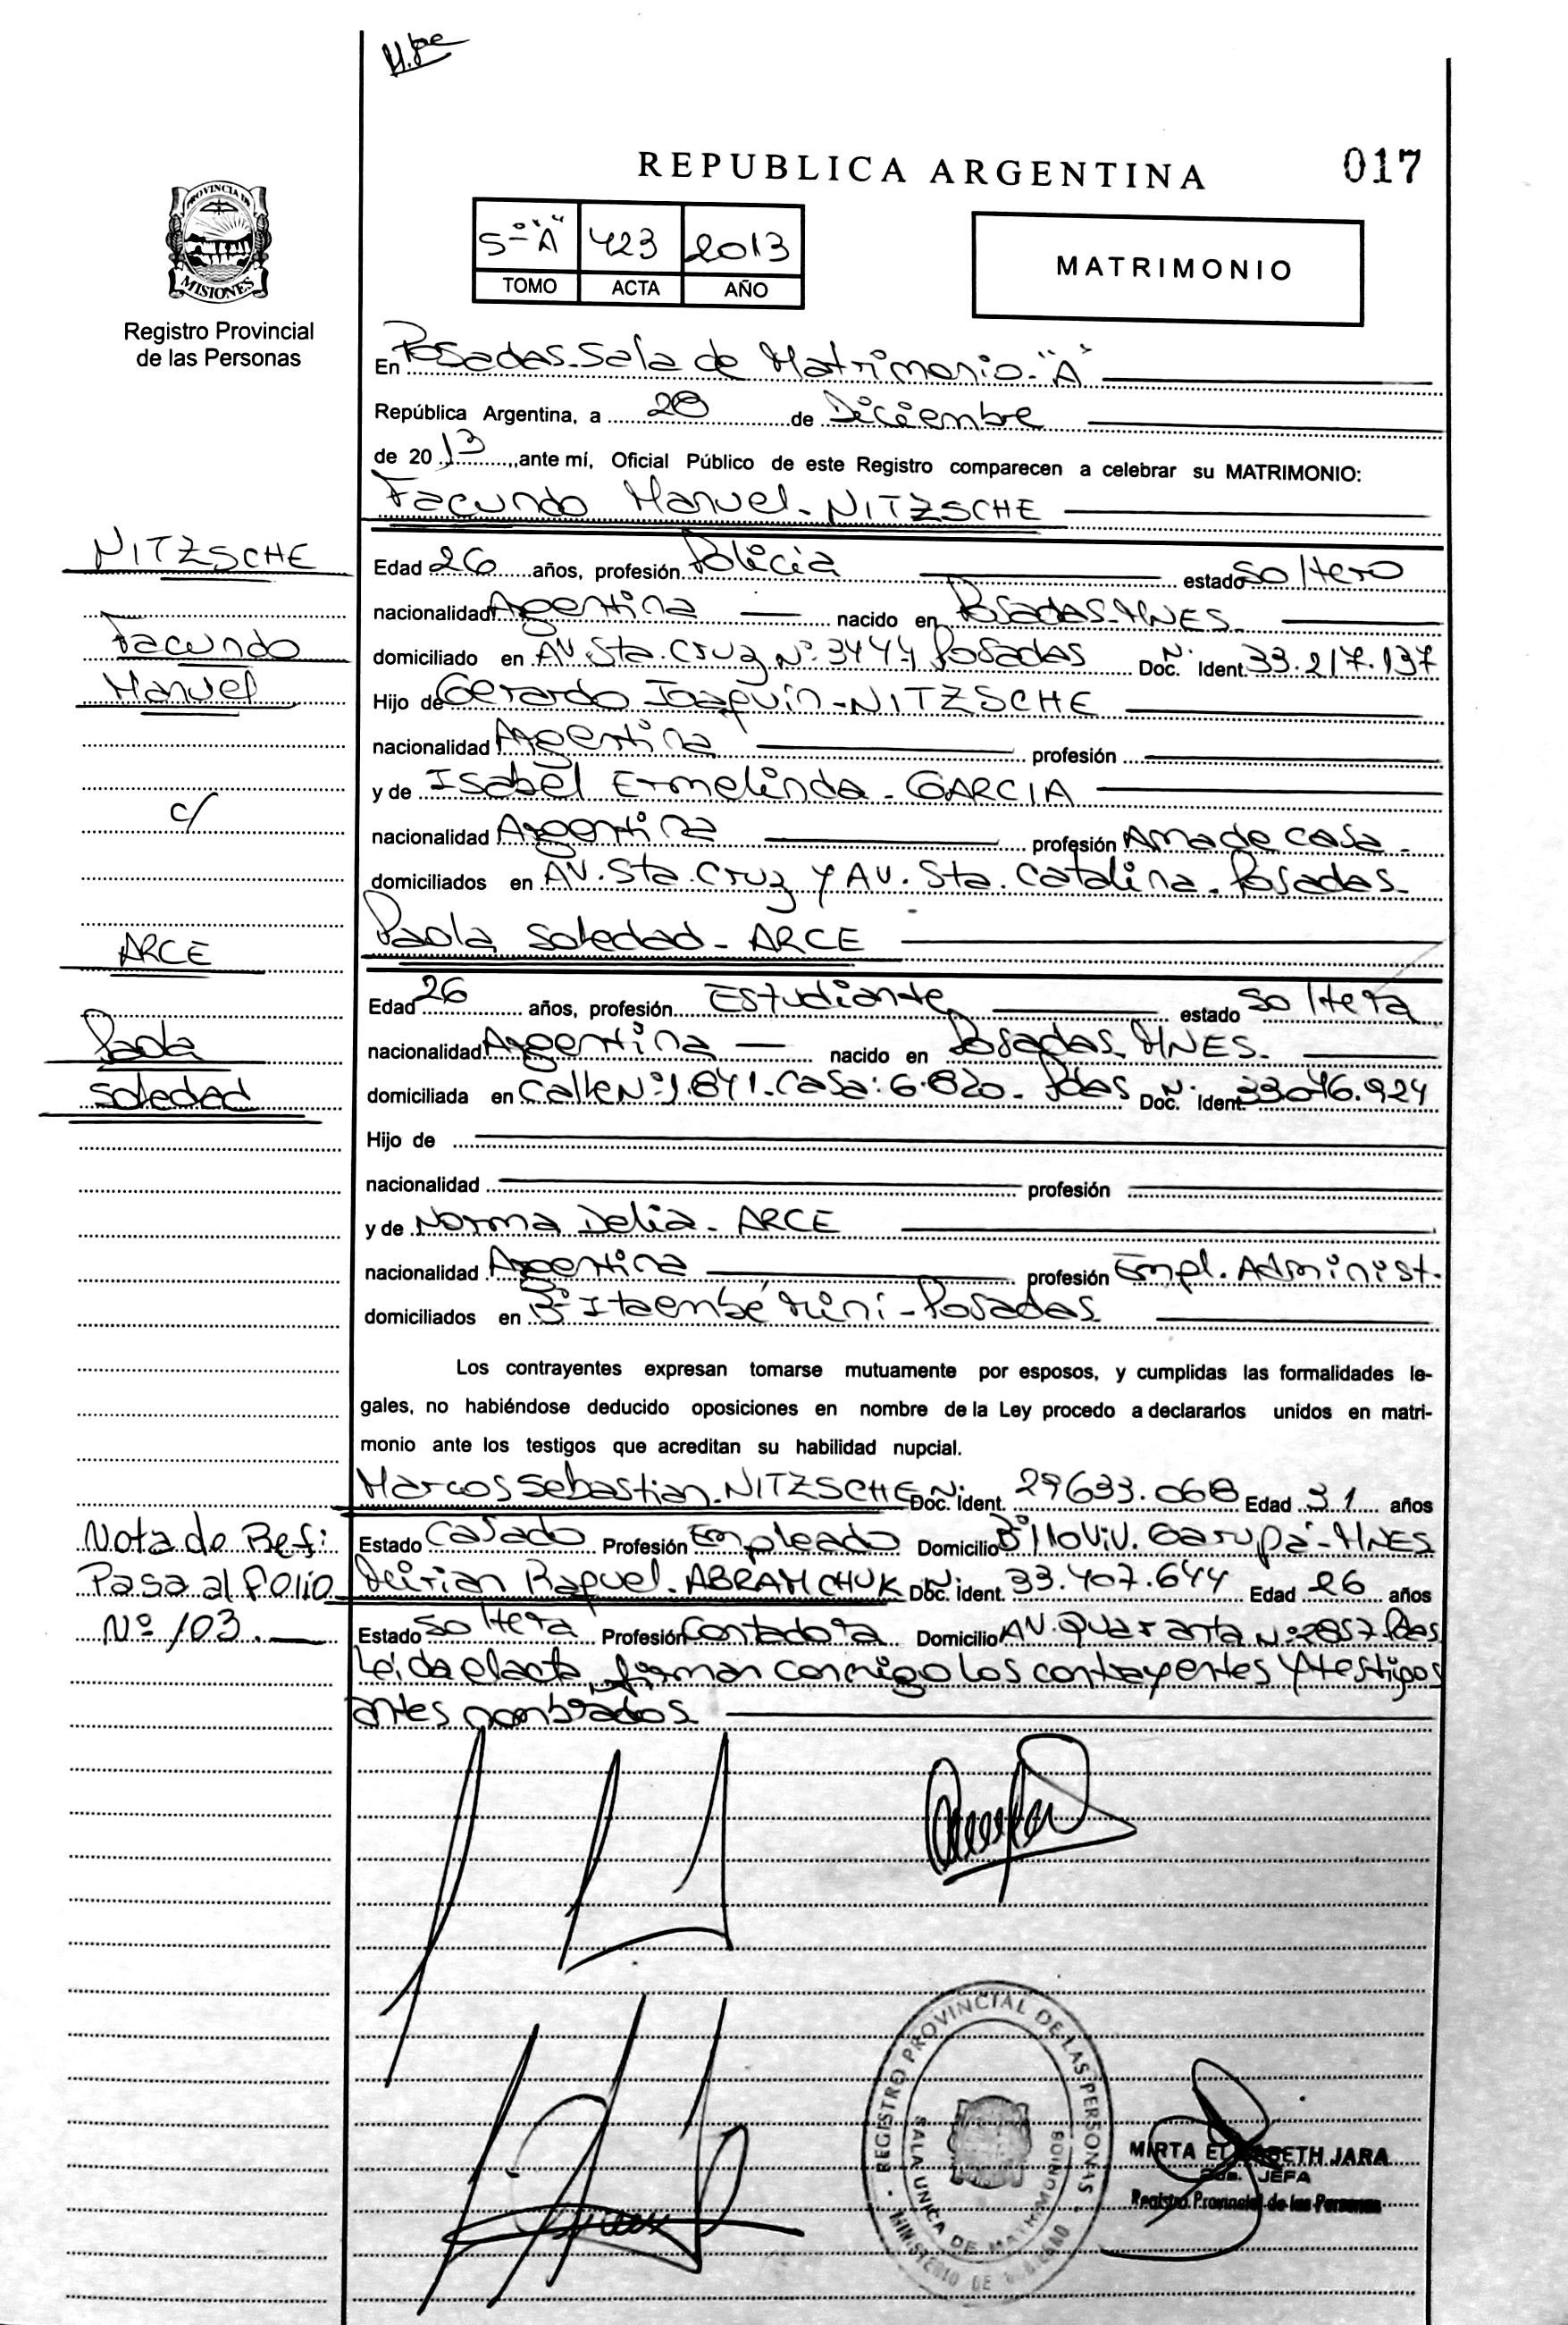 REPUBLICA ARGENTINA
017
PROVINCIA DE
MISIONES
Registro Provincial
de las Personas
5º "A" 423 2013
TOMO ACTA AÑO
MATRIMONIO
En Posadas-Sala de Matrimonio-"A"
República Argentina, a 28 de Diciembre
de 2013, ante mí, Oficial Público de este Registro comparecen a celebrar su MATRIMONIO:
Facundo Manuel-NITZSCHE
NITZSCHE
Facundo
Manuel
c/
ARCE
Paola
Soledad
Edad 26 años, profesión Policia estado Soltero
nacionalidad Argentina nacido en Posadas-MNES.
domiciliado en AV. Sta. Cruz Nº 3444 Posadas Doc. N. Ident. 33.217.137
Hijo de Gerardo Joaquín-NITZSCHE
nacionalidad Argentina profesión
y de Isabel Ermelinda-GARCIA
nacionalidad Argentina profesión Ama de casa-
domiciliados en AV. Sta. Cruz y AV. Sta. Catalina-Posadas-
Paola Soledad-ARCE
Edad 26 años, profesión Estudiante estado Soltera
nacionalidad Argentina nacido en Posadas-MNES-
domiciliada en Calle Nº 1.841-Casa: 6.820-Pdas Doc. N. Ident. 33.046.924
Hijo de
nacionalidad profesión
y de Norma Delia-ARCE
nacionalidad Argentina profesión Empl. Administ.
domiciliados en Bº Itaembé Miní-Posadas
Los contrayentes expresan tomarse mutuamente por esposos, y cumplidas las formalidades le-
gales, no habiéndose deducido oposiciones en nombre de la Ley procedo a declararlos unidos en matri-
monio ante los testigos que acreditan su habilidad nupcial.
Marcos Sebastian-NITZSCHE Doc. N. ident. 29.633.068 Edad 31 años
Estado Casado Profesión Empleado Domicilio Bº 110 Viv. Garupá-MNES
Mirian Raquel-ABRAMCHUK Doc. N. ident. 33.407.644 Edad 26 años
Estado Soltera Profesión Contadora Domicilio AV. Quaranta Nº 2857-Pdas
Leída el acta, firman conmigo los contrayentes y testigos
antes nombrados
Nota de Ref:
Pasa al folio
Nº 103.
REGISTRO PROVINCIAL DE LAS PERSONAS
SALA UNICA DE MATRIMONIOS
MINISTERIO DE
MIRTA ELIZABETH JARA
JEFA
Registro Provincial de las Personas